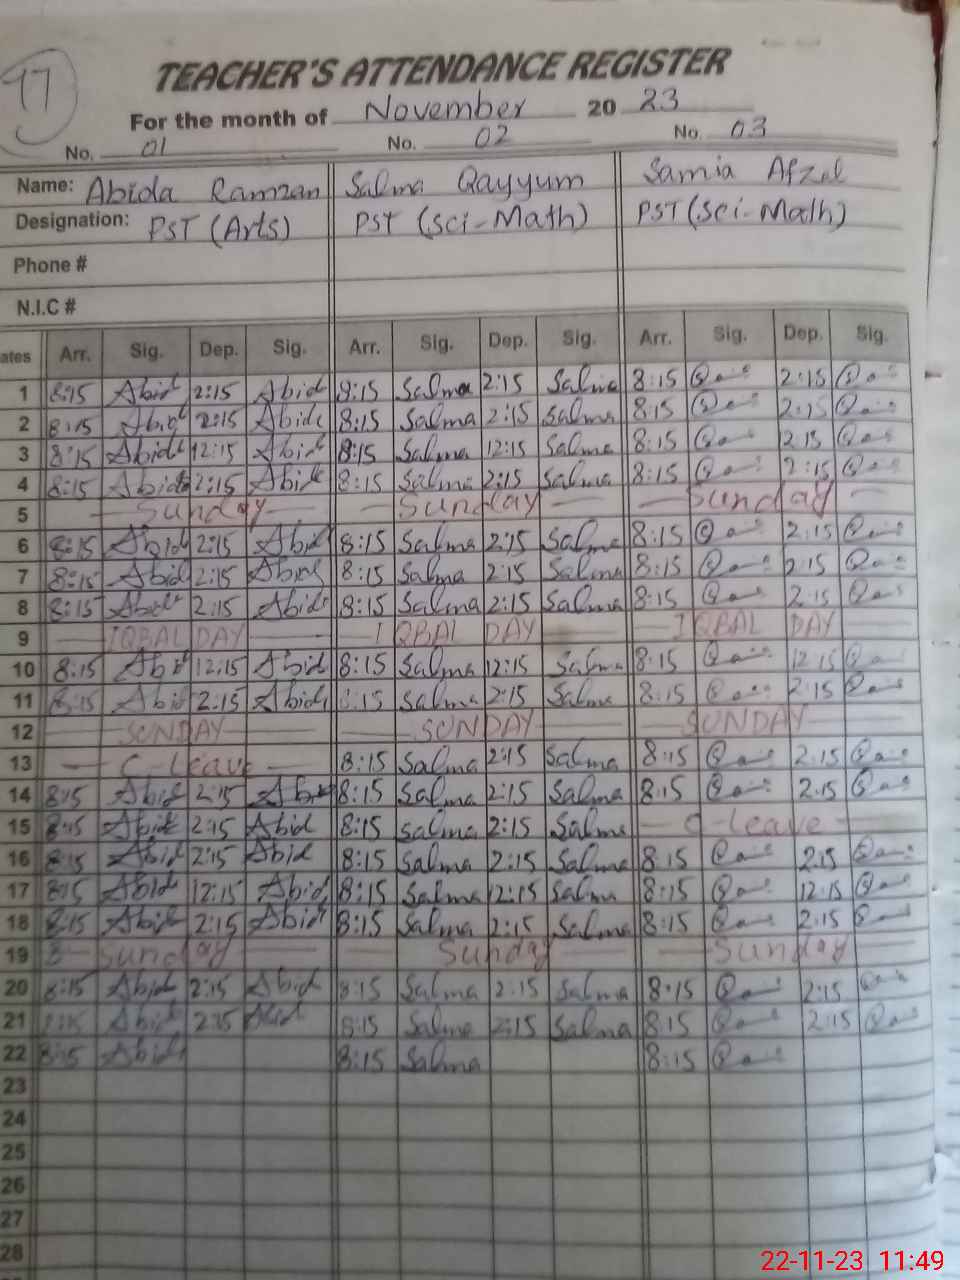 17
TEACHER'S ATTENDANCE REGISTER
For the month of November 20 23
No. 01 No. 02 No. 03
Name: Abida Ramzan Salma Qayyum Samia Afzal
Designation: PST (Arts) PST (sci-Math) PST (sci-Math)
Phone #
N.I.C #
ates Arr. Sig. Dep. Sig. Arr. Sig. Dep. Sig. Arr. Sig. Dep. Sig.
1 8:15 Abid 2:15 Abid 8:15 Salma 2:15 Salma 8:15 2:15
2 8:15 Abid 2:15 Abid 8:15 Salma 2:15 Salma 8:15 2:15
3 8:15 Abid 12:15 Abid 8:15 Salma 12:15 Salma 8:15 2:15
4 8:15 Abid 2:15 Abid 8:15 Salma 2:15 Salma 8:15 2:15
5 Sunday Sunday Sunday
6 8:15 Abid 2:15 Abid 8:15 Salma 2:15 Salma 8:15 2:15
7 8:15 Abid 2:15 Abid 8:15 Salma 2:15 Salma 8:15 2:15
8 8:15 Abid 2:15 Abid 8:15 Salma 2:15 Salma 8:15 2:15
9 IQBAL DAY IQBAL DAY IQBAL DAY
10 8:15 Abid 12:15 Abid 8:15 Salma 12:15 Salma 8:15 12:15
11 8:15 Abid 2:15 Abid 8:15 Salma 2:15 Salma 8:15 2:15
12 SUNDAY SUNDAY SUNDAY
13 C-Leave 8:15 Salma 2:15 Salma 8:15 2:15
14 8:15 Abid 2:15 Abid 8:15 Salma 2:15 Salma 8:15 2:15
15 8:15 Abid 2:15 Abid 8:15 Salma 2:15 Salma C-leave
16 8:15 Abid 2:15 Abid 8:15 Salma 2:15 Salma 8:15 2:15
17 8:15 Abid 12:15 Abid 8:15 Salma 12:15 Salma 8:15 12:15
18 8:15 Abid 2:15 Abid 8:15 Salma 2:15 Salma 8:15 2:15
19 Sunday Sunday Sunday
20 8:15 Abid 2:15 Abid 8:15 Salma 2:15 Salma 8:15 2:15
21 8:15 Abid 2:15 Abid 8:15 Salma 2:15 Salma 8:15 2:15
22 8:15 Abid 8:15 Salma 8:15
23
24
25
26
27
28
22-11-23 11:49